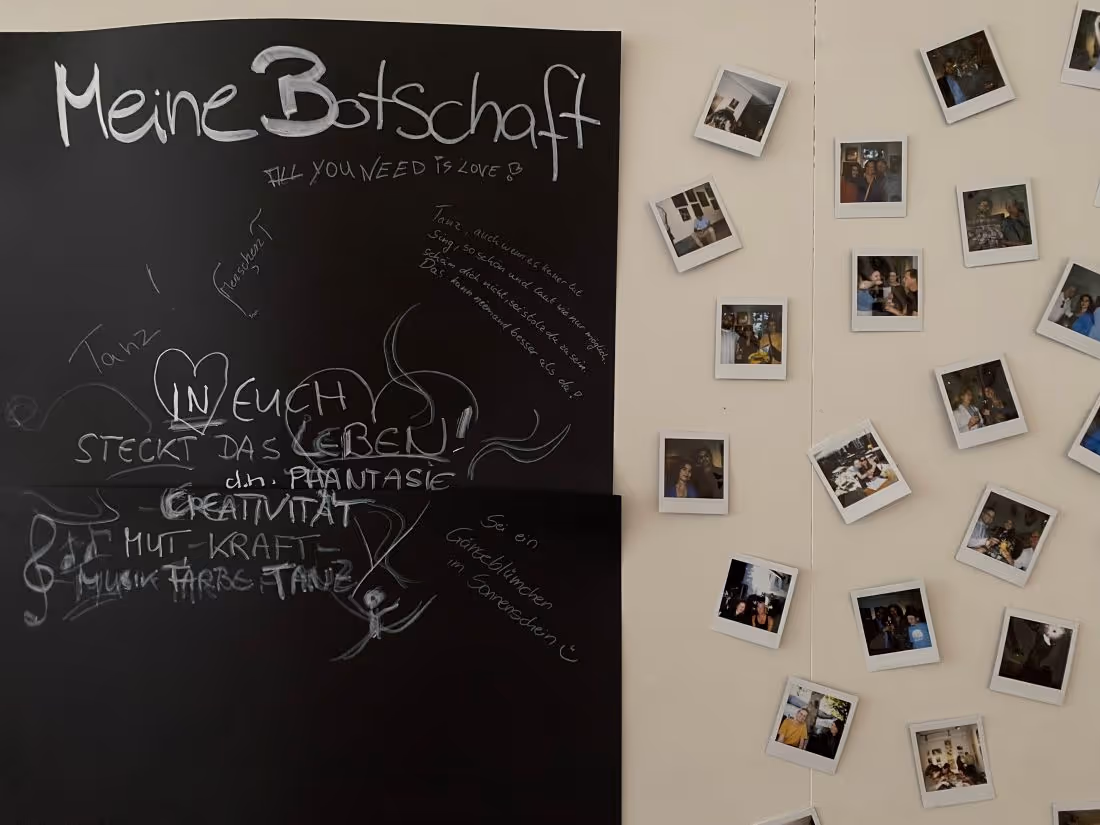 Meine Botschaft
ALL YOU NEED is LOVE
Menschen
Tanz, auch wenn es keiner tut
Sing, so schön und laut wie nur möglich.
schäm dich nicht, sei stolz du zu sein.
Das kann niemand besser als du!
Tanz!
IN EUCH
STECKT DAS LEBEN!
d.h. PHANTASIE
- CREATIVITÄT
MUT - KRAFT -
MUSIK FARBE TANZ
Sei ein
Gänseblümchen
im Sonnenschein